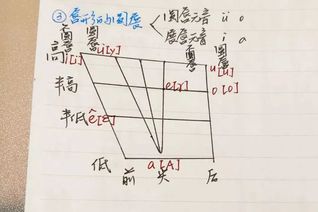 ③唇形的圆展
圆唇元音 ü o
展唇元音 i a
圆唇 圆唇
高 i[i] ü[y] u[u]
半高 e[ɤ] o[o]
半低 ê[ɛ]
低 a[A]
前 央 后